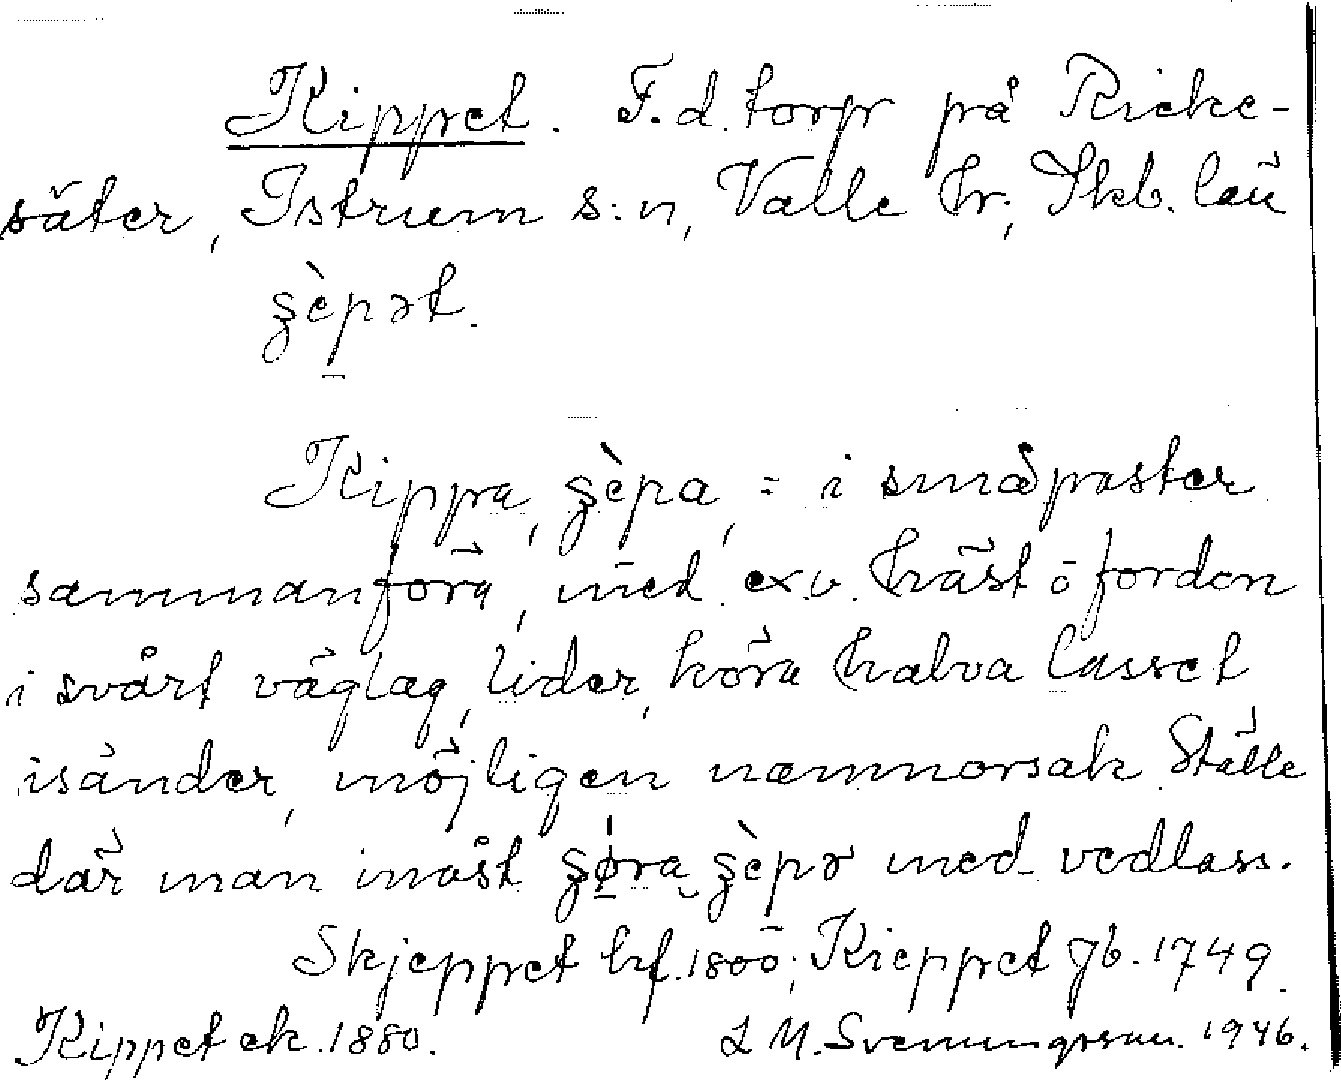 Kippet. F.d. torp på Ricke-
säter, Istrum s:n, Valle hr; Skb. län
ʂèpət.
Kippa, ʂèpa, = i småposter
sammanföra, med ex.v. häst o fordon
i svårt väglag, lider, köra halva lasset
isänder, möjligen namnorsak Ställe
där man måst ʂøra ʂèpə med vedlass.
Skjeppet hf. 1800; Kieppet jb. 1749.
Kippet ek. 1880. L M. Svenungsson. 1946.